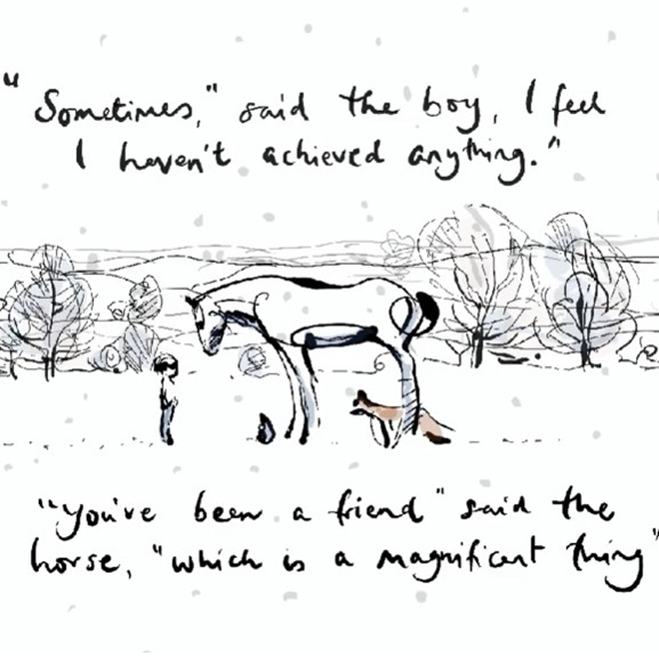 "Sometimes," said the boy, I feel
I haven't achieved anything."
"You've been a friend" said the
horse, "which is a magnificent thing"